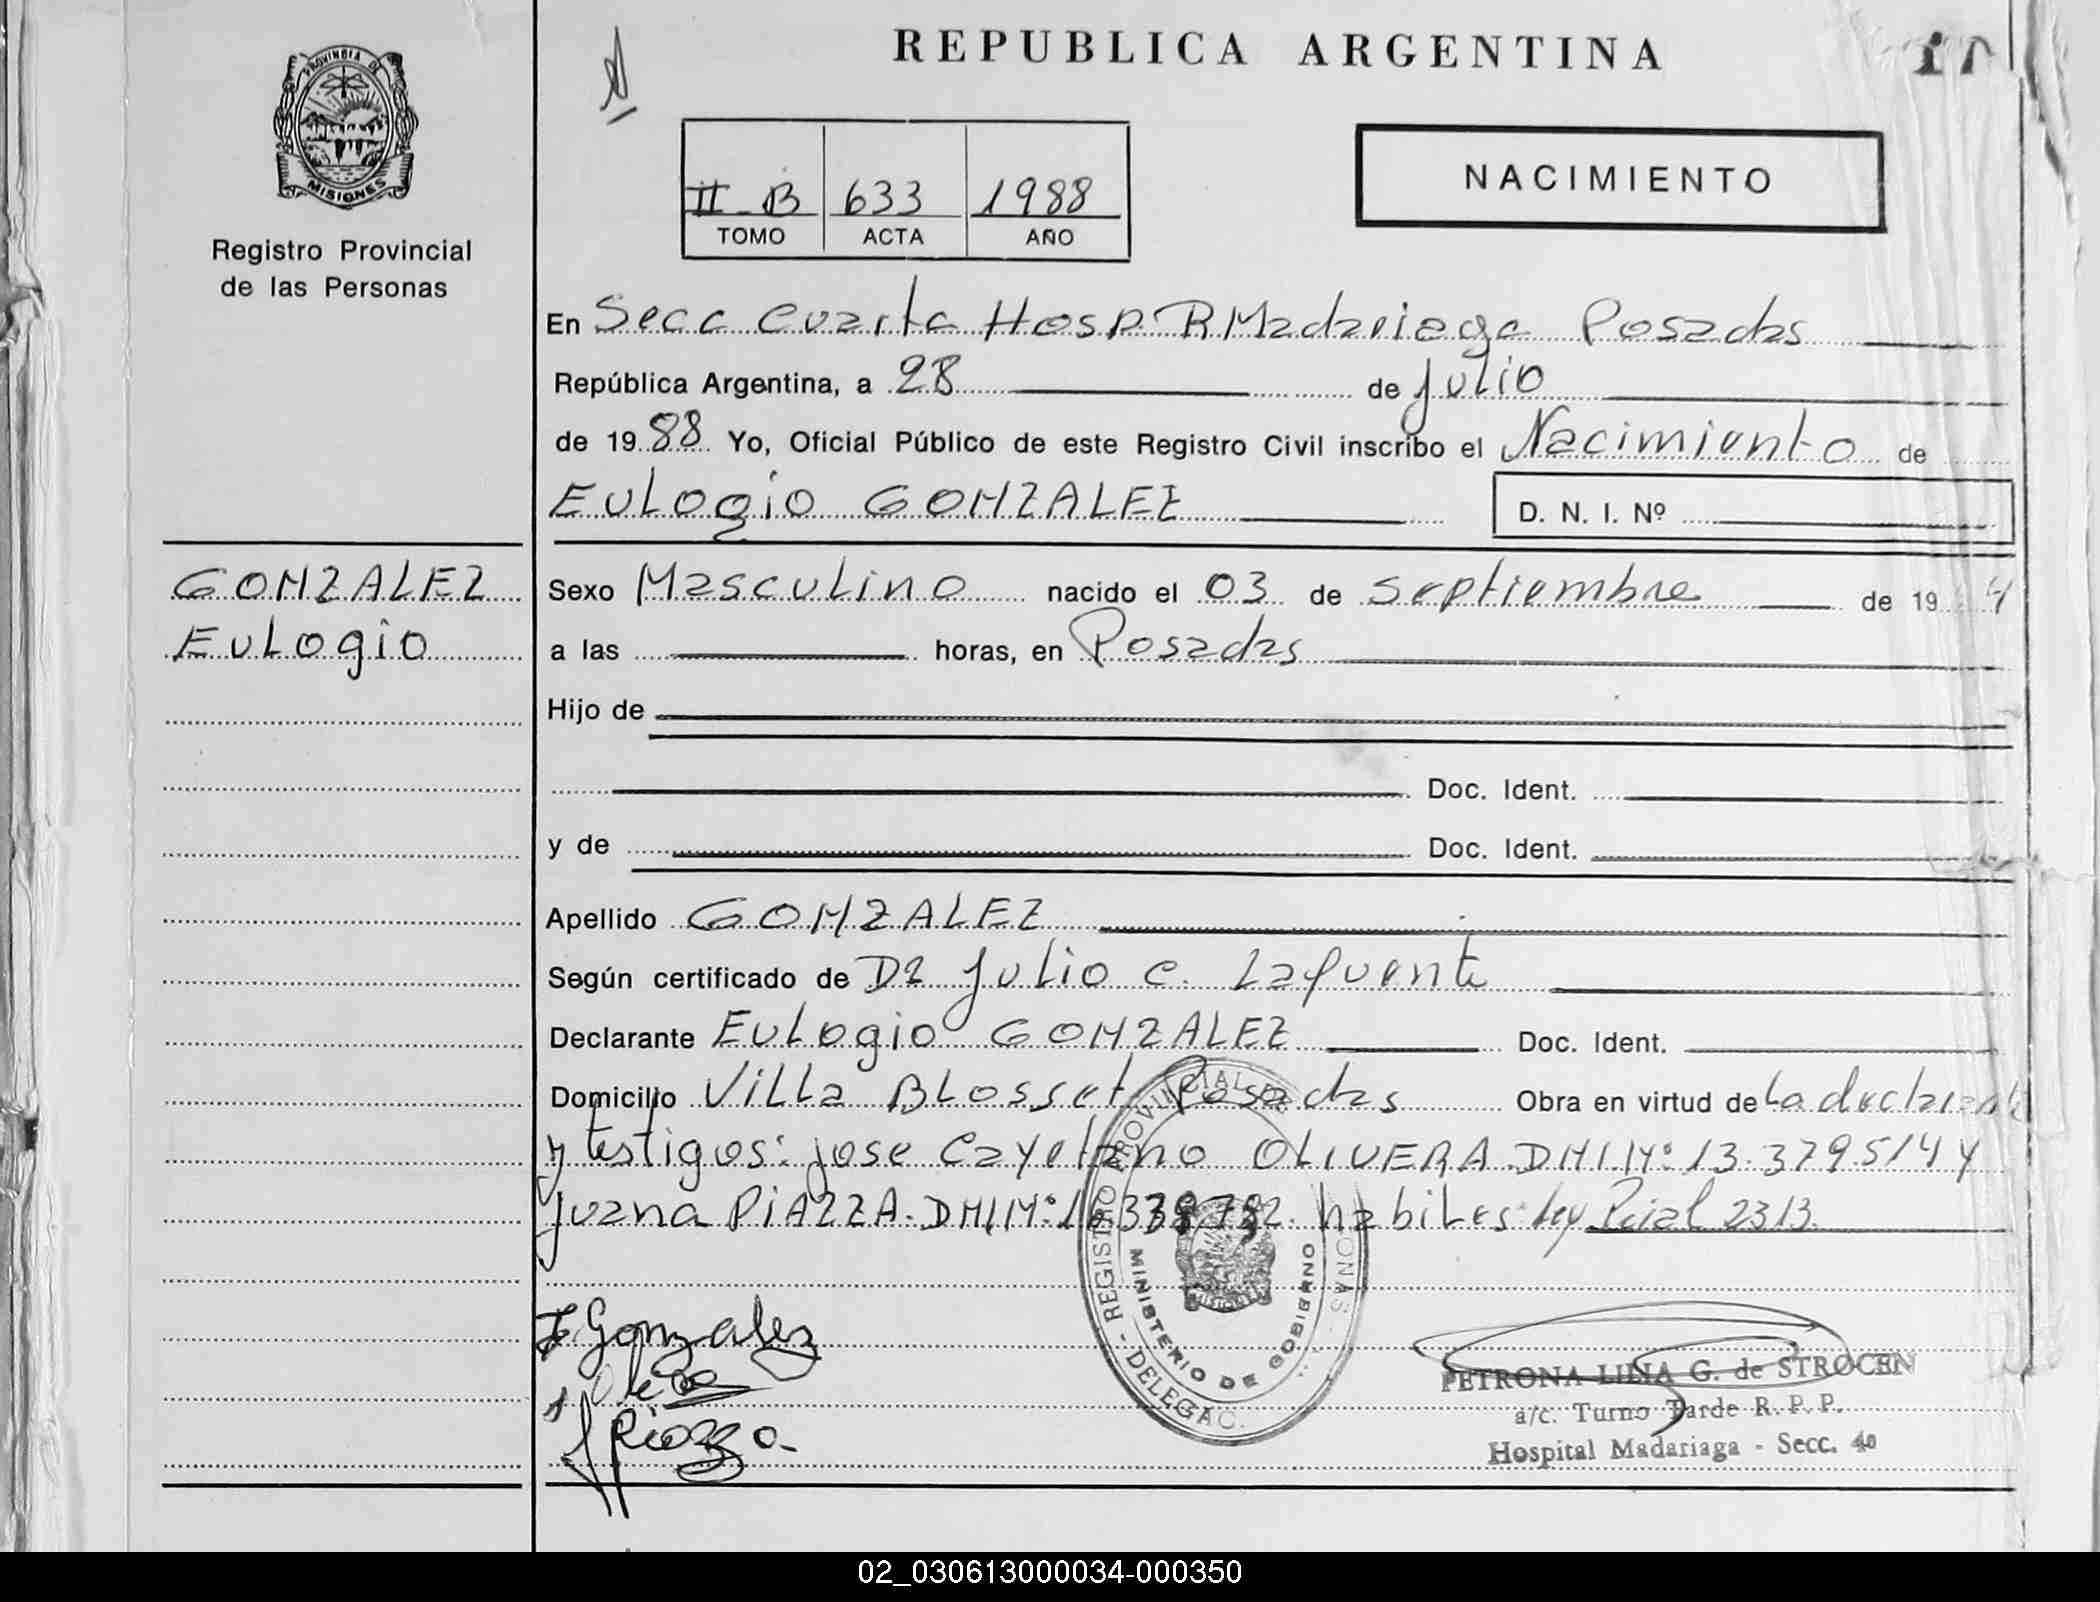 REPUBLICA ARGENTINA
PROVINCIA DE
MISIONES
Registro Provincial
de las Personas
II-B 633 1988
TOMO ACTA AÑO
NACIMIENTO
En Secc Cuarta Hosp. R Madariaga Posadas
República Argentina, a 28 de Julio
de 1988 Yo, Oficial Público de este Registro Civil inscribo el Nacimiento de
EULOGIO GONZALEZ D. N. I. Nº
GONZALEZ
EULOGIO
Sexo Masculino nacido el 03 de septiembre de 19 4
a las horas, en Posadas
Hijo de
Doc. Ident.
y de Doc. Ident.
Apellido GONZALEZ
Según certificado de Dr Julio C. Lafuente
Declarante EULOGIO GONZALEZ Doc. Ident.
Domicilio Villa BLOSSET Posadas Obra en virtud de La
y testigos: Jose Cayetano OLIVERA DNI.Nº 13.379.514 y
Juana PIAZZA. DNI Nº habiles Ley Pcial 2313.
E Gonzalez
Piazza
REGISTRO PROVINCIAL DE - DELEGAC.
MINISTERIO DE GOBIERNO
MISIONES
PETRONA LILIA G. de STROCEN
a/c. Turno Tarde R. P. P.
Hospital Madariaga - Secc. 4a
02_030613000034-000350